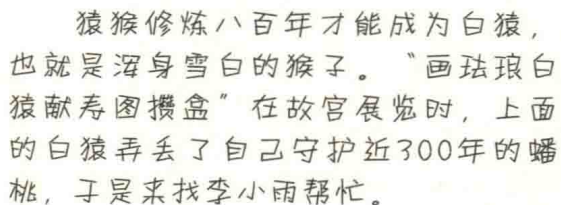 猿猴修炼八百年才能成为白猿，
也就是浑身雪白的猴子。“画珐琅白
猿献寿图攒盒”在故宫展览时，上面
的白猿弄丢了自己守护近300年的蟠
桃，于是来找李小雨帮忙。